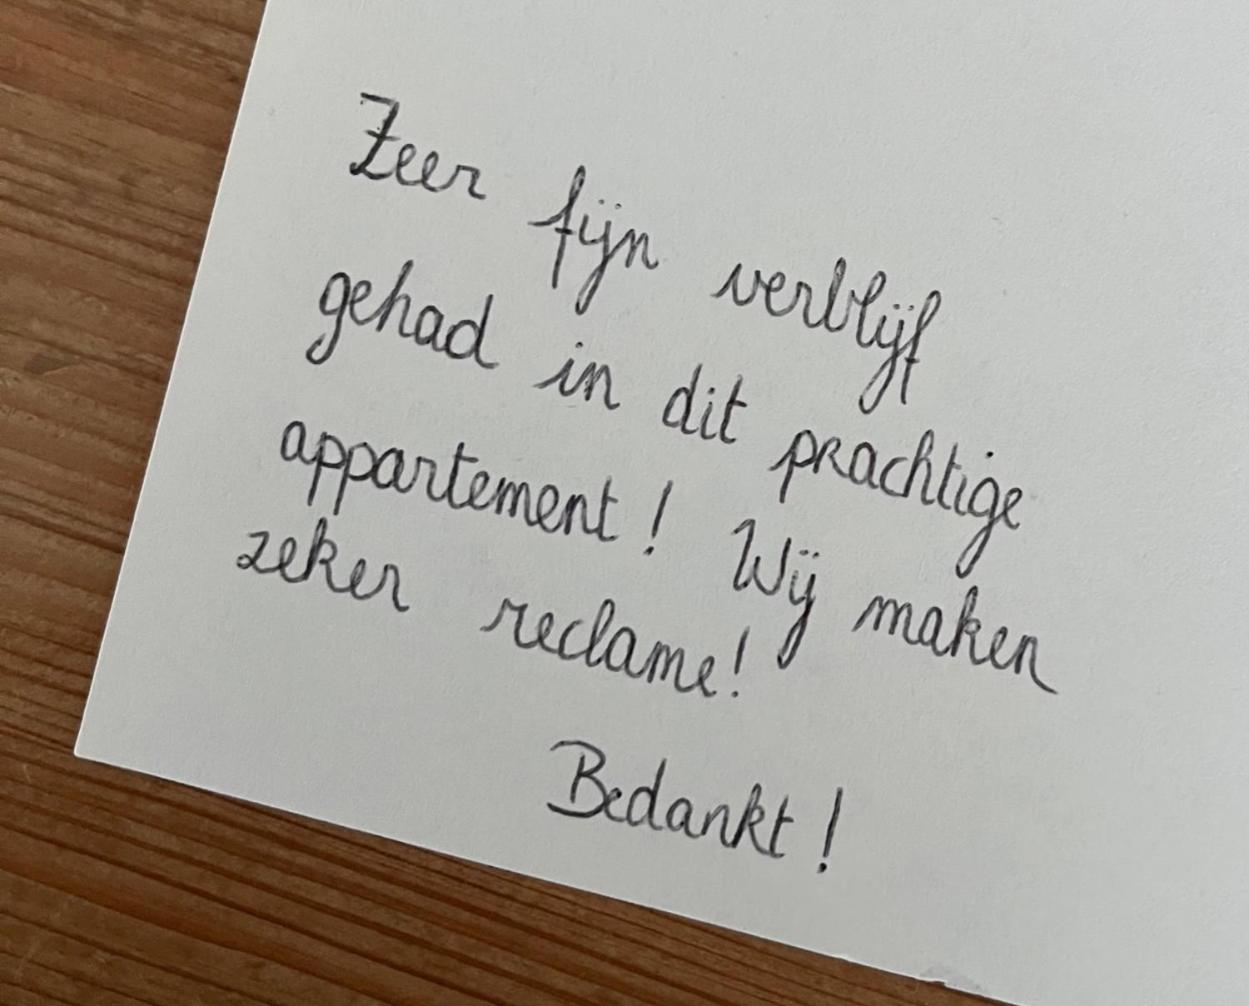 Zeer fijn verblijf
gehad in dit prachtige
appartement! Wij maken
zeker reclame!
Bedankt!